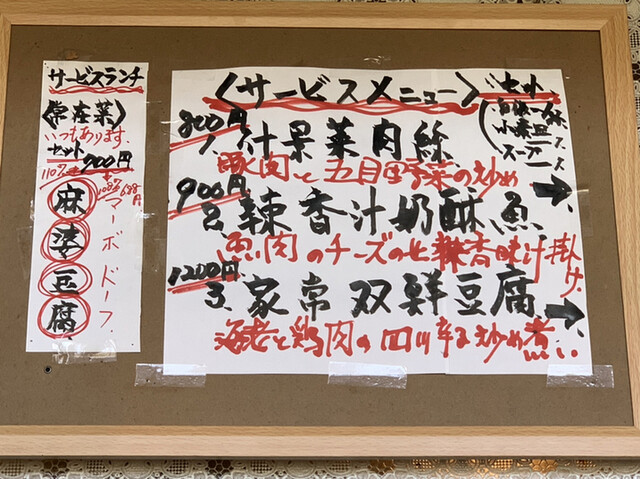 サービスランチ
〈常座菜〉
いつもあります.
セット
900円
麻婆豆腐
マーボドーフ.
〈サービスメニュー〉
セット
小菜皿
スープ
800円
1. 什景菜肉絲
豚肉と五目野菜の炒め
900円
2. 辣香汁奶酥魚
魚肉のチーズの
香味汁掛け.
1200円
3. 家常双鮮豆腐
海老と鶏肉の四川辛み炒め煮